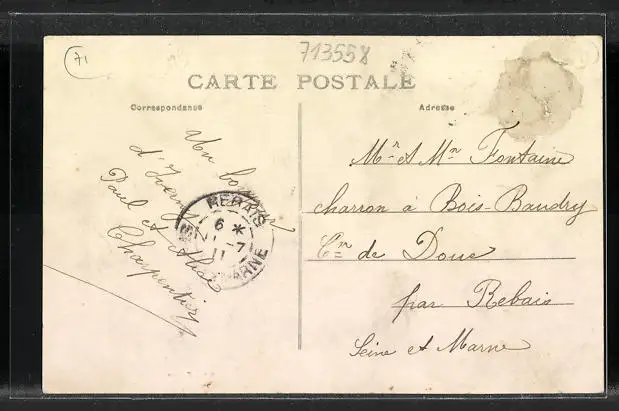 71
713558
CARTE POSTALE
Correspondance
Adresse
Un bonjour
d'
Paul et Alice
Charpentier
REBAIS
6 *
11 - 7
11
MARNE
Mr et Mme Fontaine
charron à Bois-Baudry
Cne de Doue
par Rebais
Seine et Marne